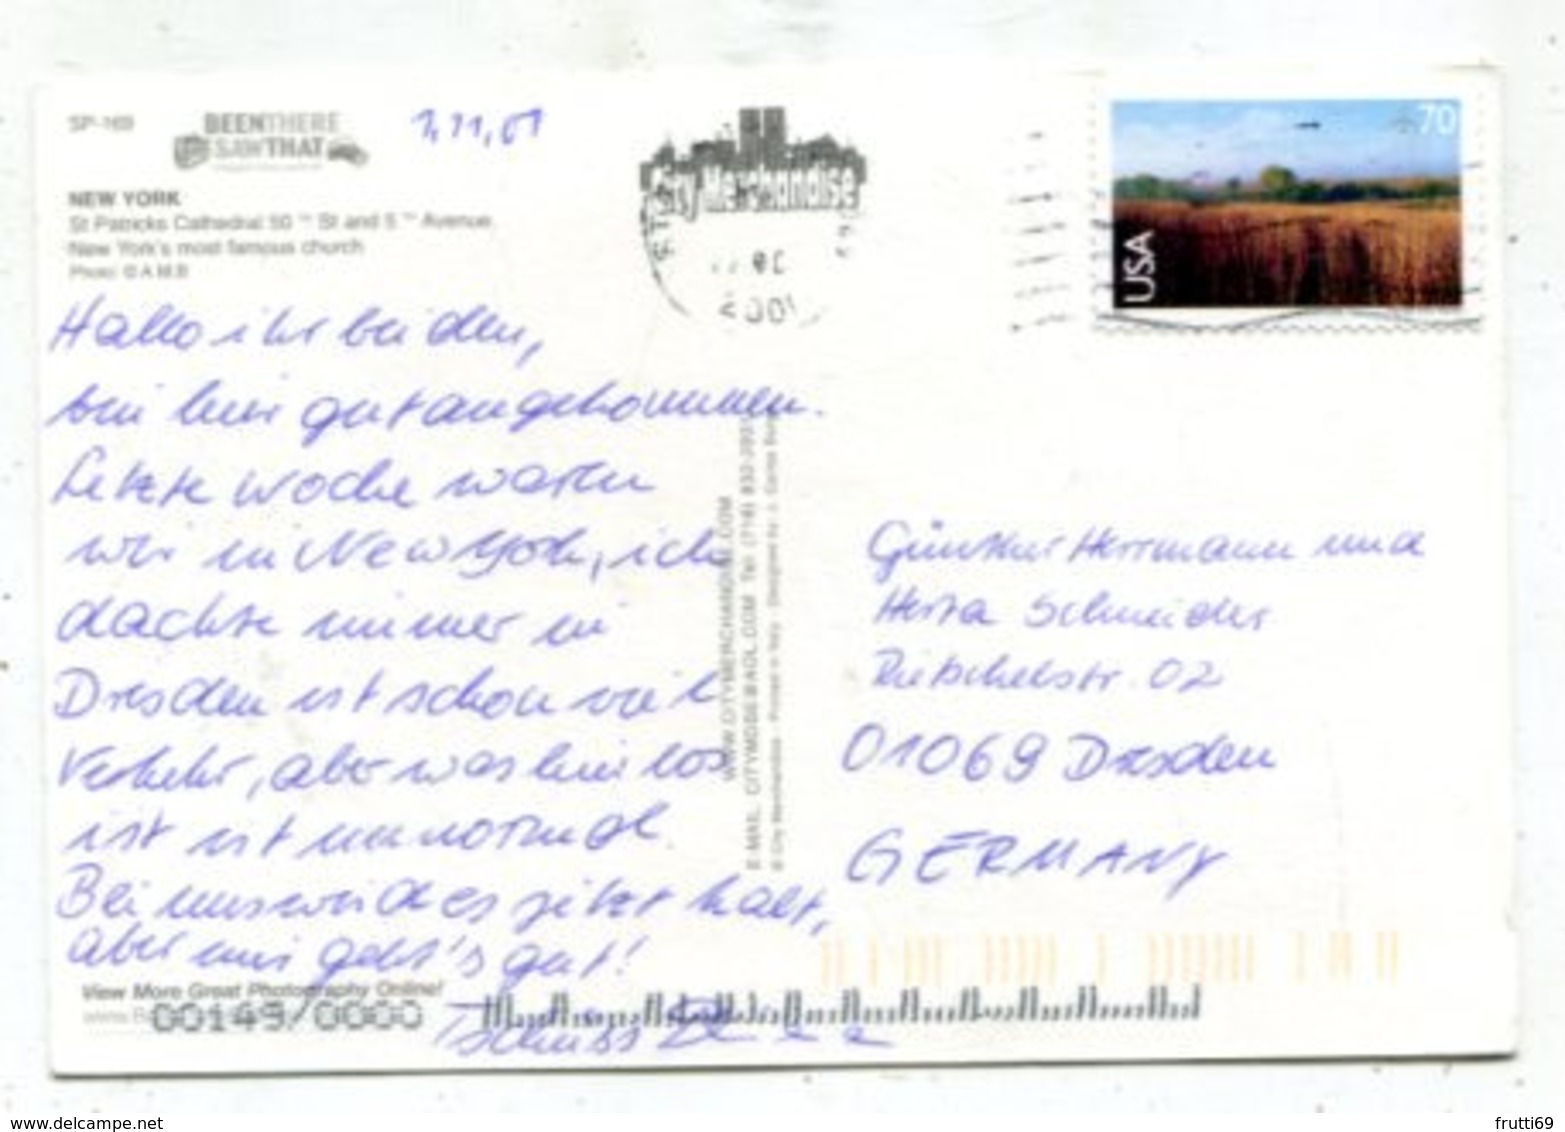 SP-169
BEENTHERE
SAWTHAT
1.11.01
NEW YORK
St Patricks Cathedral 50 TH St and 5 TH Avenue.
New York's most famous church
Photo: © A.M.B
City Merchandise
2001
70
USA
Hallo ihr beiden,
bin hier gut angekommen.
Letzte Woche waren
wir in New York, ich
dachte immer in
Dresden ist schon viel
Verkehr, aber was hier los
ist ist unnormal.
Bei uns wird es jetzt kalt,
aber mir geht's gut!
Tschüss
WWW.CITYMERCHANDISE.COM
E-MAIL: CITYMDSE@AOL.COM Tel: (718) 832-2931
© City Merchandise - Printed in Italy - Designed by: J. Carlos
Günther Herrmann und
Herta Schneider
Rietschelstr. 02
01069 Dresden
GERMANY
View More Great Photography Online!
00149/0000
www.delcampe.net
frutti69